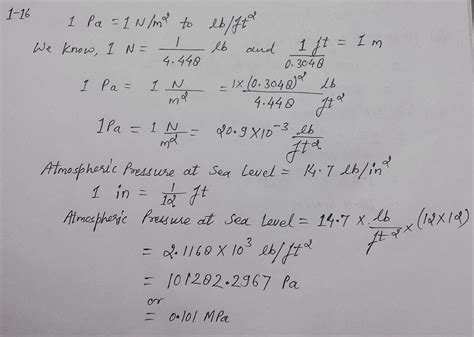 1-16
1 Pa = 1 N/m² to lb/ft²
We know, 1 N = 1/4.448 lb and 1 ft/0.3048 = 1 m
1 Pa = 1 N/m² = 1×(0.3048)²/4.448 lb/ft²
1Pa = 1 N/m² = 20.9×10⁻³ lb/ft²
Atmospheric Pressure at Sea Level = 14.7 lb/in²
1 in = 1/12 ft
Atmospheric Pressure at Sea Level = 14.7 × lb/ft² × (12×12)
= 2.1168 × 10³ lb/ft²
= 101282.2967 Pa
or
= 0.101 MPa